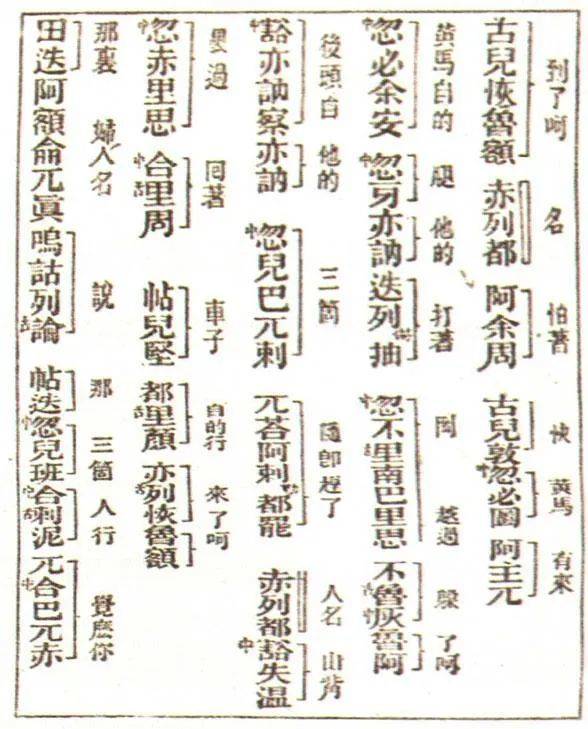 到了呵 名 怕著 快 黃馬 有來
古兒恢魯額 赤列都 阿余周 古兒敦 忽必圖 阿主兀
黃馬自的 腿 他的 打著 岡 越過 躱 了呵
忽必余安 忽牙亦訥 迭列抽 忽不里南巴里思 不魯灰魯阿
後頭自 他的 三箇 隨卽趕了 人名 山背
豁亦訥察亦訥 忽兒巴兀剌 兀荅阿剌都罷 赤列都 豁失溫
過 回著 車子 自的行 來了呵
忽赤里思 合里周 帖兒堅 都里顏 亦列恢魯額
那裏 婦人名 說 那 三箇 人行 覺麽你
田迭 阿額侖兀眞 嗚詁列論 帖迭 忽兒班 合剌泥 兀合巴兀赤